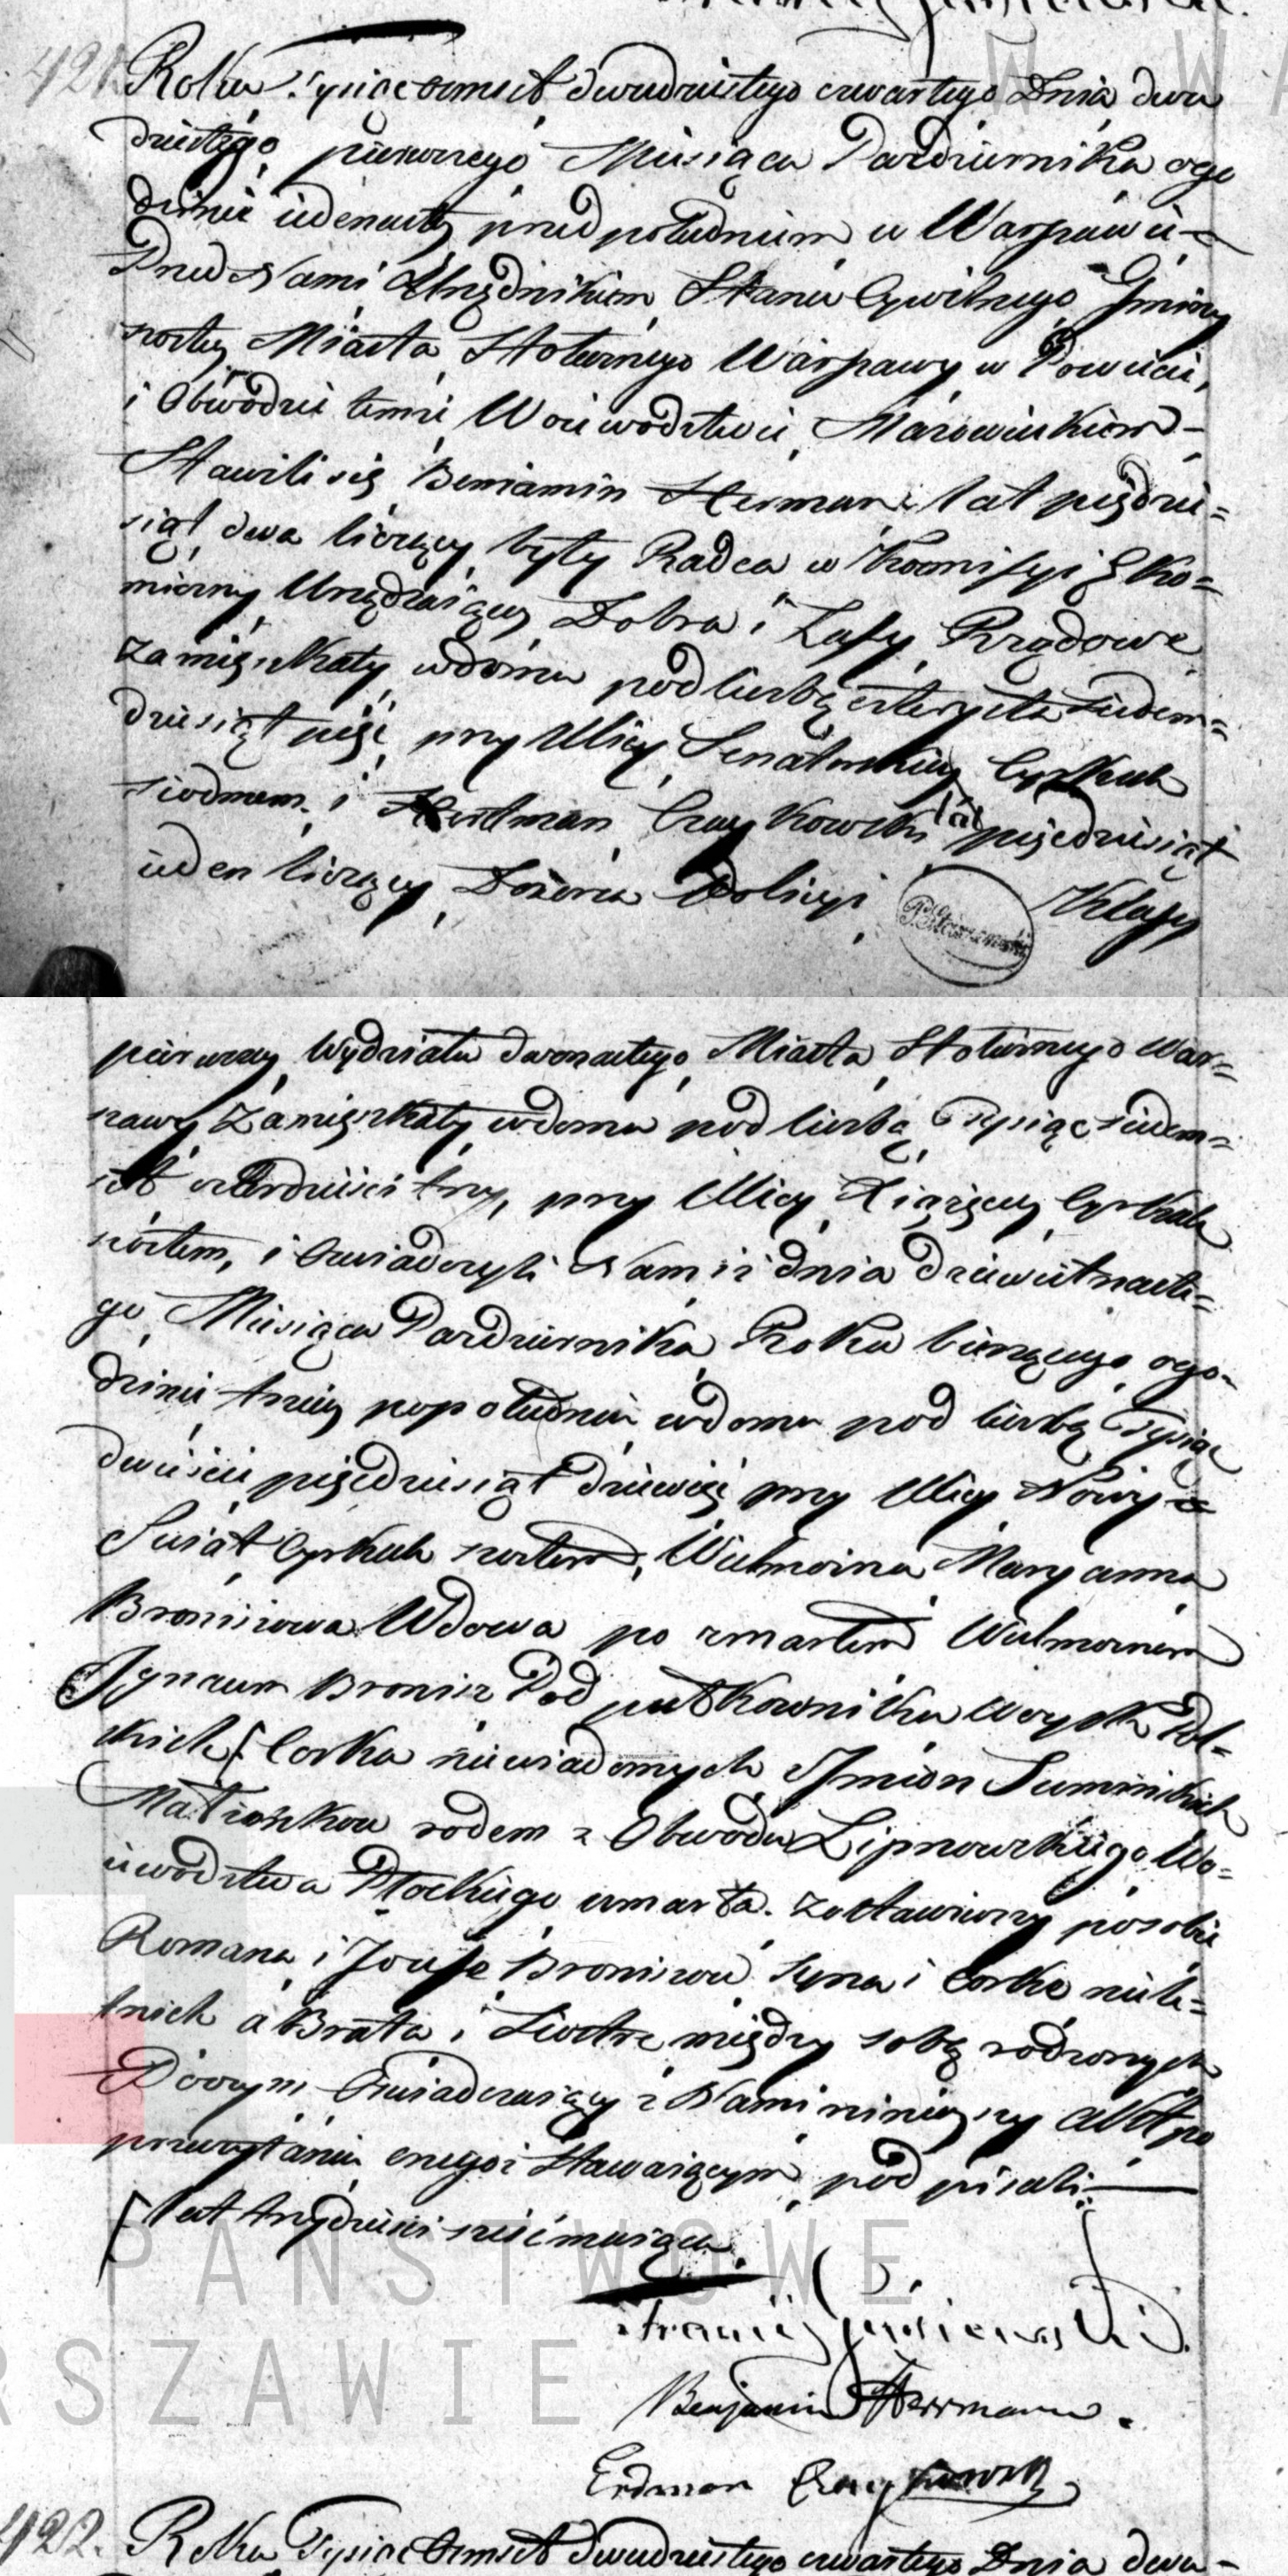 421. Roku Tysiąc osmset dwudziestego czwartego Dnia dwu
dziestego pierwszego Miesiąca Pazdziernika o go
dzinie iedenastey przed południem w Warszawie
Przed Nami Urzędnikiem Stanu Cywilnego Gminy
szostey Miasta Stołecznego Warszawy w Powiecie,
i Obwodzie temże Woiewodztwie Mazowieckiem –
Stawili się Beniamin Herman lat piędzie=
siąt dwa liczący były Radca w Kommissyi Eko=
miczny Urządzaiący Dobra i Lasy Rządowe
zamięszkały w domu pod liczbą czterysta siedem=
dziesiąt pięć przy Ulicy Senatorskiey Cyrkule
siodmem i Herdman Czaykowski lat pięcdziesiąt
ieden liczący Dozorca Policyi Klassy
pierwszey Wydziału dwonastego Miasta Stołecznego War=
szawy Zamięszkały w domu pod liczbą Tysiąc siedem=
set czterdzieści trzy, przy Ulicy Xiążęcey Cyrkule
szostem, i Oswiadczyli Nam iż dnia dziewiętnaste=
go Miesiąca Pazdziernika Roku bieżącego o go=
dzinie trzeciey po południu w domu pod liczbą Tysiąc
dwieście pięcdziesiąt dziewięć przy Ulicy Nowy =
Swiat Cyrkule szostem, Wielmożna Maryanna
Broniszowa Wdowa po zmarłem Wielmożnem
Ignacem Bronisz Pod pułkowniku Woysk Pol=
skich [ Corka niewiadomych Imion Suminskich
Małżonkow rodem z Obwodu Lipnowskiego Wo=
iewodztwa Płockiego umarła. zostawiwszy po sobie
Romana i Jozefe Broniszow syna i corke niele=
tnich a Brata i Siostre między sobą rodzonych
Poczym Oswiadczaiący z Nami ninieyszy Akt po
przeczytaniu onegoż Stawaiącym podpisali. —
[ lat trzydzieści sześć maiąca.
Benjamin Herrmann.
Erdman Czaykowski
422. Roku Tysiąc Osmset dwudziestego czwartego Dnia dwu=
PAŃSTWOWE
RSZAWIE